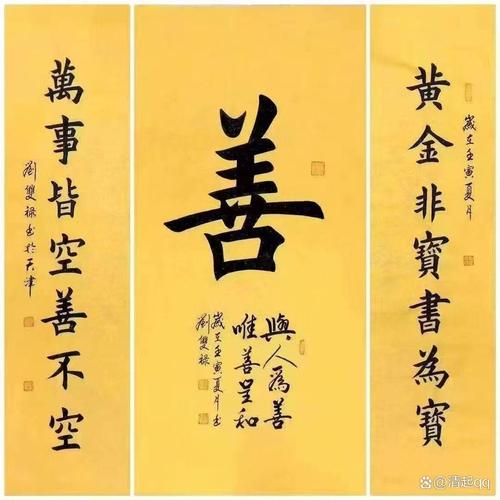 黄金非寶書為寶
歲在壬寅夏月
善
與人為善
唯善呈和
歲在壬寅夏月書
劉雙祿
萬事皆空善不空
劉雙祿書於天津
@清起qq